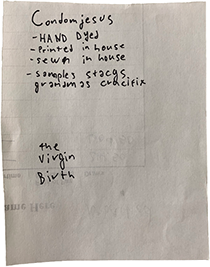 Condomjesus
- HAND Dyed
- printed in house
- sewn in house
- samples stacys
grandmas crucifix
the
Virgin
Birth